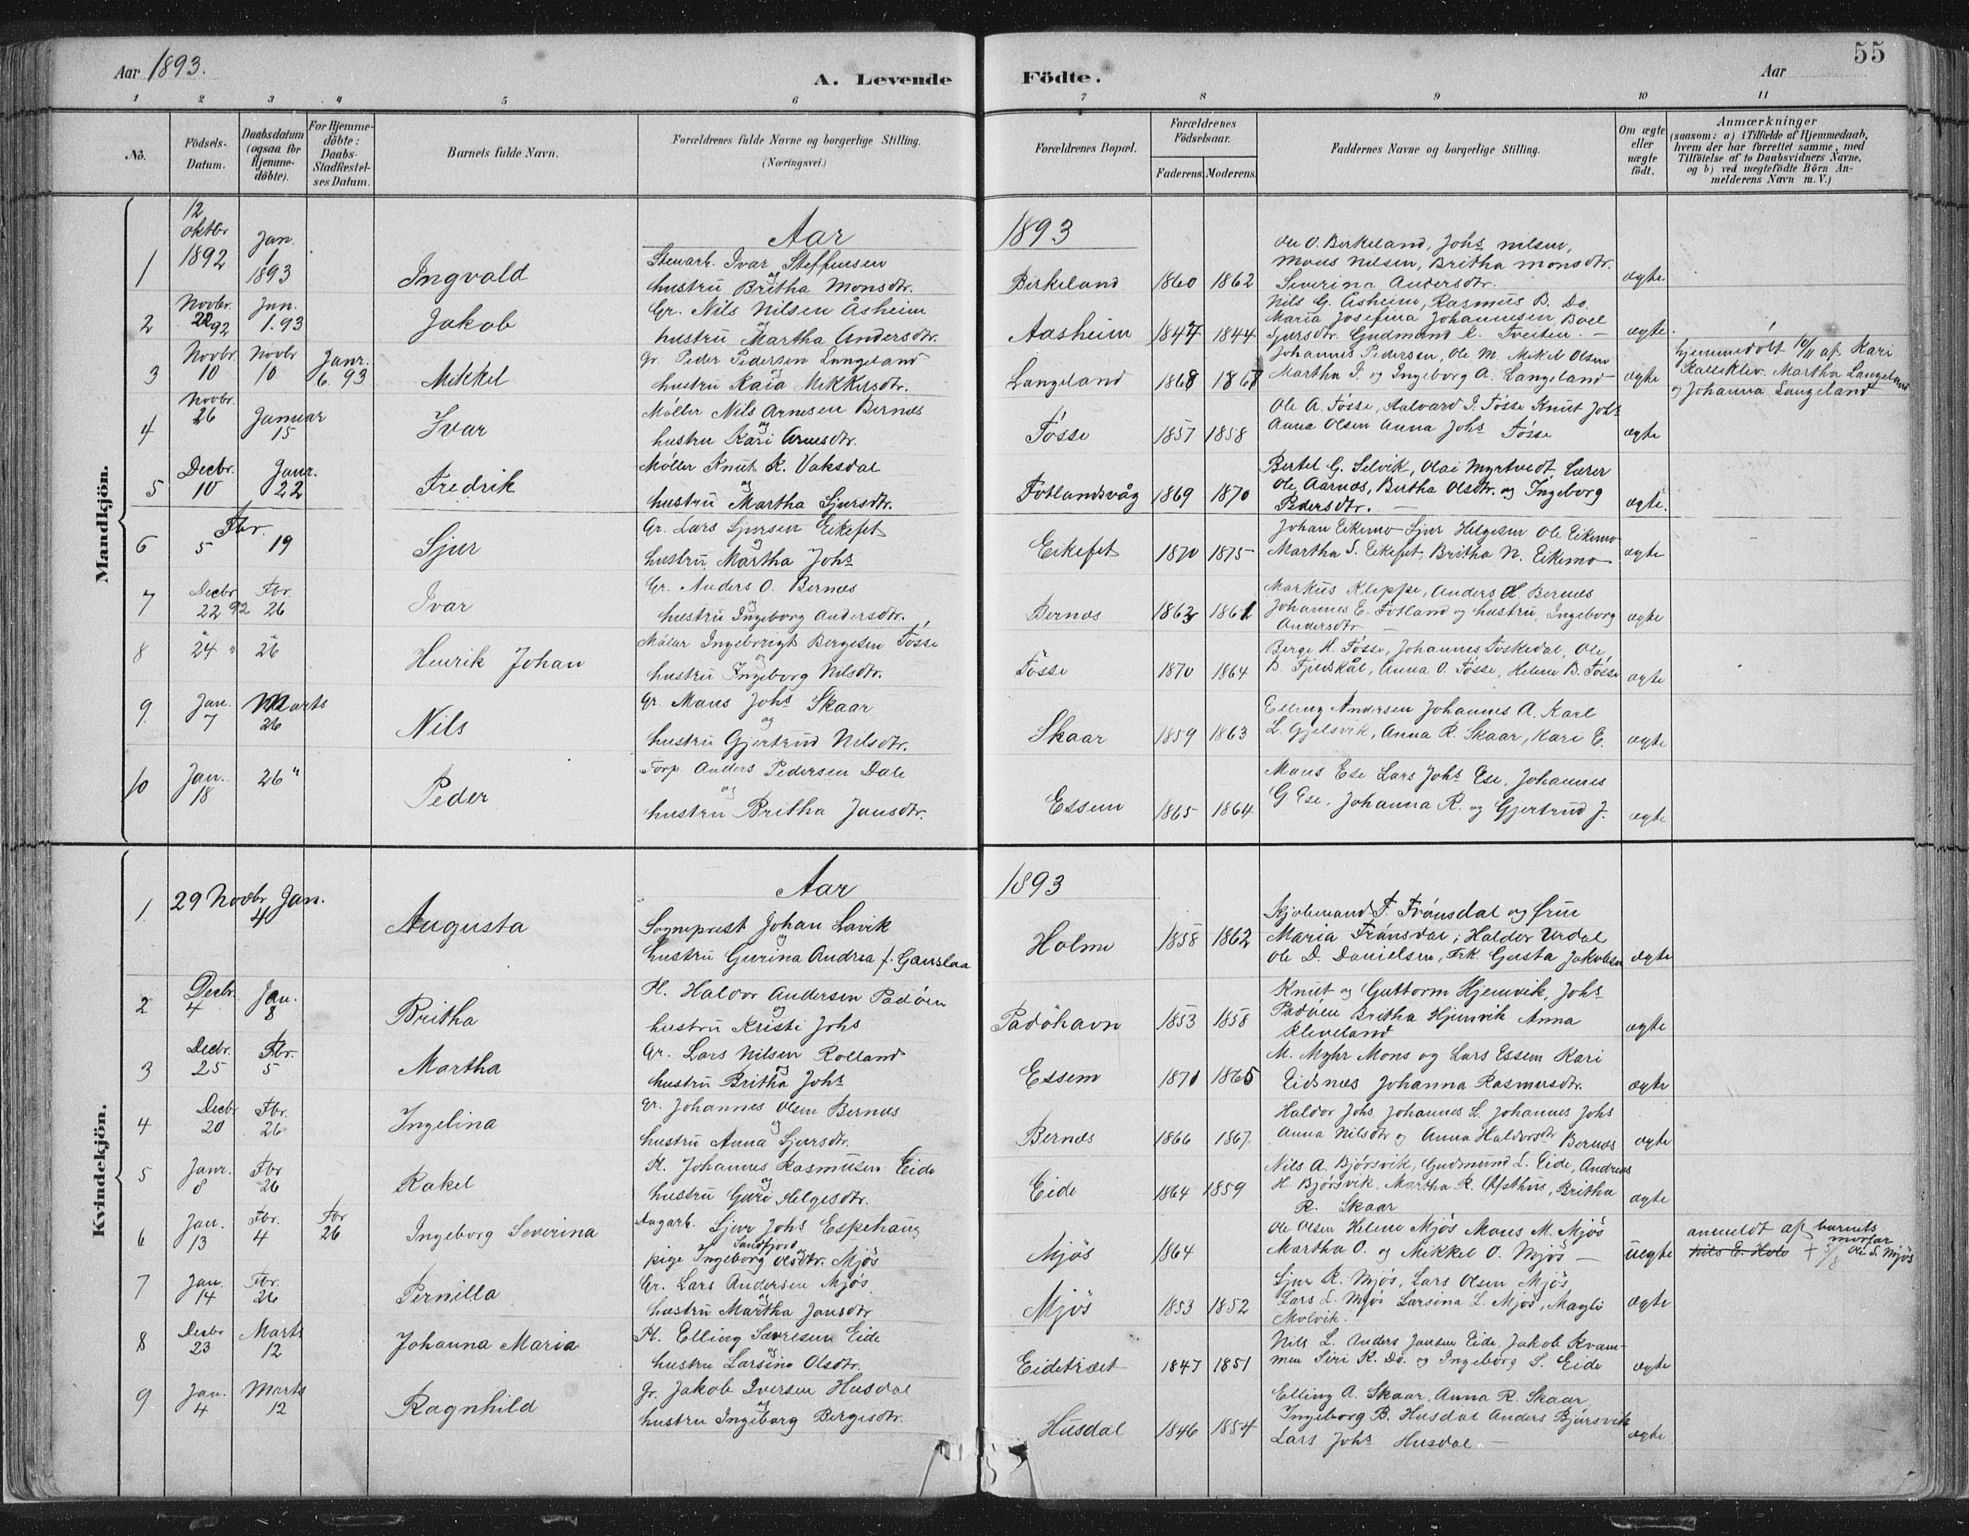 55
Aar 1893.
A. Levende Födte.
Aar
1 2 3 4 5 6 7 8 9 10 11
No.
Födsels-Datum.
Daabsdatum (ogsaa for Hjemme-döbte).
For Hjemme-döbte: Daabs-Stadfæstel-ses Datum.
Barnets fulde Navn.
Forældrenes fulde Navne og borgerlige Stilling. (Næringsvei.)
Forældrenes Bopæl.
Forældrenes Födselsaar.
Faderens. Moderens.
Faddernes Navne og borgerlige Stilling.
Om ægte eller uægte födt.
Anmærkninger
(saasom: a) i Tilfælde af Hjemmedaab,
hvem der har forrettet samme, med
Tilföielse af to Daabsvidners Navne,
og b) ved uægtefödte Börn An-
melderens Navn m. V.)
Mandkjön.
Aar 1893
1 12 oktbr 1892 Jan. 1 1893 Ingvald
Stenarb. Ivar Steffensen
og
hustru Britha Monsdtr.
Birkeland 1860 1862
Ole O. Birkeland, Johs Nilsen,
Mons Nilsen, Britha Monsdtr.
Severina Andersdtr.
ægte
2 Novbr. 92 Jan. 1. 93 Jakob
Gr. Nils Nilsen Åsheim
og
hustru Martha Andersdtr.
Aasheim 1847 1844
Nils G. Åsheim, Rasmus B. Do.
Maria Josefina Johannesen, Boel
Sjursdtr. Gudmund K. Tveiten —
ægte
3 Novbr. 10 Novbr 10 Janr. 6. 93 Mikkel
Gr. Peder Pedersen Langeland
hustru Kari Mikkelsdtr.
Langeland 1868
Johannes Pedersen, Ole M. Mikel Olsen
Martha J. og Ingeborg A. Langeland
ægte
hjemmedöbt 10/11 af Kari
Martha Langeland
og Johanna Langeland
4 Novbr. 26 Januar 15 Ivar
Möller Nils Arnesen Bernes
og
hustru Kari Arnesdtr.
Fósse 1857 1858
Ole A. Fósse, Aalvard I. Fósse Knut Johs
Anna Olsen Anna Johs Fósse
ægte
5 Decbr. 10 Janr. 22 Fredrik
Möller Knut K. Vaksdal
og
hustru Martha Sjursdtr.
Fotlandsvåg 1869 1870
Bertel G. Selvik, Olai Myrtvedt Lærer
Ole Aarnæs, Britha Olsdtr. og Ingeborg
Pedersdtr. —
ægte.
6 5 Fbr. 19 Sjur
Gr. Lars Sjursen Eikefet
og
hustru Martha Johs
Eikefet 1870 1875
Johan Eikemo Sjur Helgesen Ole Eikemo
Martha S. Eikefet, Britha N. Eikemo
ægte
7 Decbr 22 92 Fbr. 26 Ivar
Gr. Anders O. Bernes
hustru Ingeborg Andersdtr.
Bernæs 1862 1861
Markus Kleppe, Anders H Bernes
Johannes E. Fotland og hustru, Ingeborg
Andersdtr
ægte
8 " 24 " " 26 Henrik Johan
Möller Ingebrigt Bergesen Fósse
og
hustru Ingeborg Nilsdtr.
Fósse 1870 1864
Berge H. Fósse, Johannes Toskedal, Ole
B. Fjellskål, Anna O. Fósse, Helene B. Fósse
ægte
9 Jan. 7 Marts 26 Nils
Gr. Mons Johs Skaar
og
hustru Gjertrud Nilsdtr.
Skaar 1859 1863
Elling Andersen Johannes A. Karl
L. Gjelsvik, Anna R. Skaar, Kari E.
ægte
10 Jan. 18 26 " Peder
Forp. Anders Pedersen Dale
og
hustru Britha Jansdtr.
Essem 1865 1864
Mons Ese Lars Johs Ese, Johannes
G Ese, Johanna R. og Gjertrud J.
ægte
Kvindekjön.
Aar 1893
1 29 Novbr Jan. 4 Augusta
Sogneprest Johan Lavik
og
hustru Gurina Andrea f. Gauslaa
Holme 1858 1862
Kjøbmand F. Trónsdal og Fru
Maria Trónsdal, Haldor Urdal
Ole D. Danielsen, Frk Gusta Jakobsen
ægte
2 Decbr. 4 Jan. 8 Britha
Pl. Haldor Andersen Padóen
og
hustru Kristi Johs
Padöhavn 1853 1858
Knut og Guttorm Hjemvik, Johs
Padóen Britha Hjemvik Anna
Kleveland
ægte
3 Decbr. 25 Fbr. 5 Martha
Gr. Lars Nilsen Rolland
og
hustru Britha Johs
Essem 1870 1865
M. Myhr Mons og Lars Essem Kari
Eidsnes Johanna Rasmusdtr.
ægte
4 Decbr 20 Fbr. 26 Ingelina
Gr. Johannes Olsen Bernes
og
hustru Anna Sjursdtr.
Bernæs 1866 1867.
Haldor Johs. Johannes L. Johannes Johs
Anna Nilsdtr og Anna Haldorsdtr Bernæs
ægte
5 Janr. 8 Fbr 26 Rakel
Pl. Johannes Rasmusen Eide
og
hustru Guri Helgesdtr.
Eide 1864 1859
Nils A. Bjórsvik, Gudmund L. Eide, Andreas
H. Bjórsvik, Martha R. Opthun, Britha
R. Skaar
ægte
6 Jan. 13 Fbr. 4 Fbr 26 Ingeborg Severina
Angarb. Sjur Johs Espehaug
Sandfjord
pige Ingeborg Olsdtr. Mjös
Mjös 1864
Ole Olsen Helene Mjós Mons M. Mjós
Martha O. og Mikkel O. Mjós —
uegte
anmeldt af barnets
morfar
Nils E. Hole + 5/8 Ole S. Mjös
7 Jan. 14 Fbr. 26 Pernilla
Gr. Lars Andersen Mjós
og
hustru Martha Jansdtr
Mjös 1853 1852
Sjur R. Mjós, Lars Olsen Mjós
Lars L. Mjós Larsina L. Mjós, Magli
Molvik.
ægte
8 Decbr 23 Marts 12 Johanna Maria
Pl. Elling Sævresen Eide
og
hustru Larsine Olsdtr.
Eidetræet 1847 1851
Nils L. Anders Jansen Eide, Jakob Kvam-
men Siri K. Do. og Ingeborg S. Eide
ægte
9 Jan. 4 Marts 12 Ragnhild
Gr. Jakob Iversen Husdal
og
hustru Ingeborg Bergesdtr.
Husdal 1846 1854
Elling A. Skaar, Anna R. Skaar,
Ingeborg B. Husdal Anders Bjórsvik
Lars Johs Husdal —
ægte